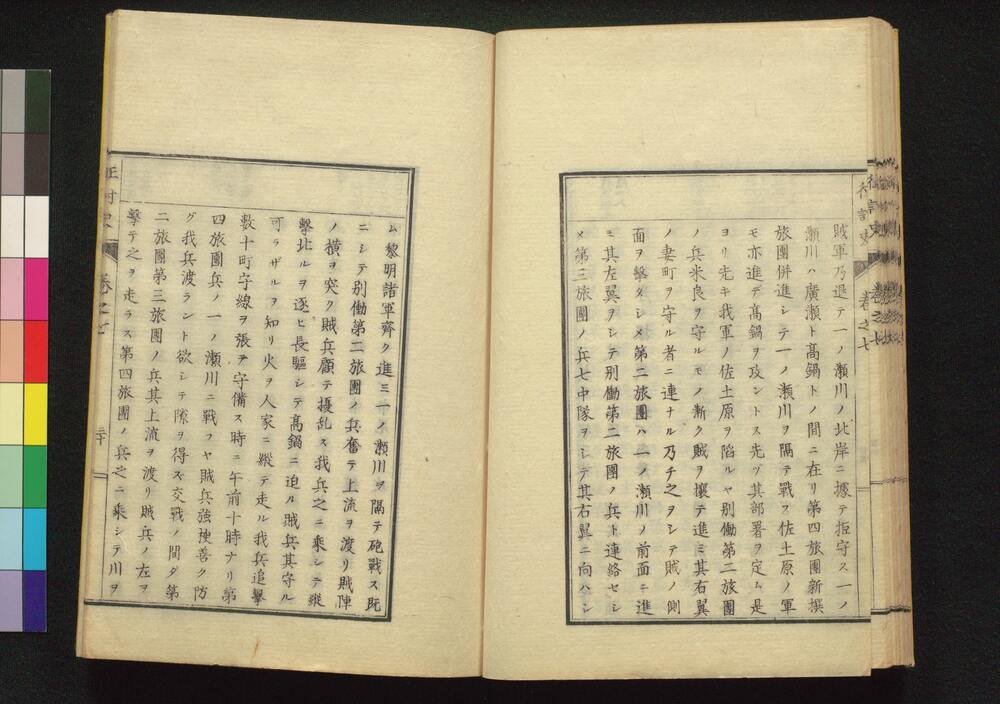 賊軍乃退テ一ノ瀬川ノ北岸ニ據テ拒守ス一ノ
瀬川ハ廣瀬ト高鍋トノ間ニ在リ第四旅團新撰
旅團併進シテ一ノ瀬川ヲ隔テ戰フ佐土原ノ軍
モ亦進デ高鍋ヲ攻ントス先ヅ其部署ヲ定ム是
ヨリ先キ我軍ノ佐土原ヲ陷ルヤ別働第二旅團
ノ兵米良ヲ守ルモノ漸ク賊ヲ攘テ進ミ其右翼
ノ妻町ヲ守ル者ニ連ナル乃チ之ヲシテ賊ノ側
面ヲ擊タシメ第二旅團ハ一ノ瀬川ノ前面ニ進
ミ其左翼ヲシテ別働第二旅團ノ兵ト連絡セシ
メ第三旅團ノ兵七中隊ヲシテ其右翼ニ向ハシ
征討史
卷之七
ム黎明諸軍齊ク進ミ一ノ瀬川ヲ隔テ砲戰ス既
ニシテ別働第二旅團ノ兵奮テ上流ヲ渡リ賊陣
ノ横ヲ突ク賊兵顧テ擾乱ス我兵之ニ乘シテ縱
擊北ルヲ逐ヒ長驅シテ高鍋ニ迫ル賊兵其守ル
可ラザルヲ知リ火ヲ人家ニ縱テ走ル我兵追擊
數十町守線ヲ張テ守備ス時ニ午前十時ナリ第
四旅團兵ノ一ノ瀬川ニ戰フヤ賊兵強梗善ク防
グ我兵渡ラント欲シテ隙ヲ得ズ交戰ノ間ダ第
二旅團第三旅團ノ兵其上流ヲ渡リ賊兵ノ左ヲ
擊テ之ヲ走ラス第四旅團ノ兵之ニ乘シテ川ヲ
征討史
卷之七
三十